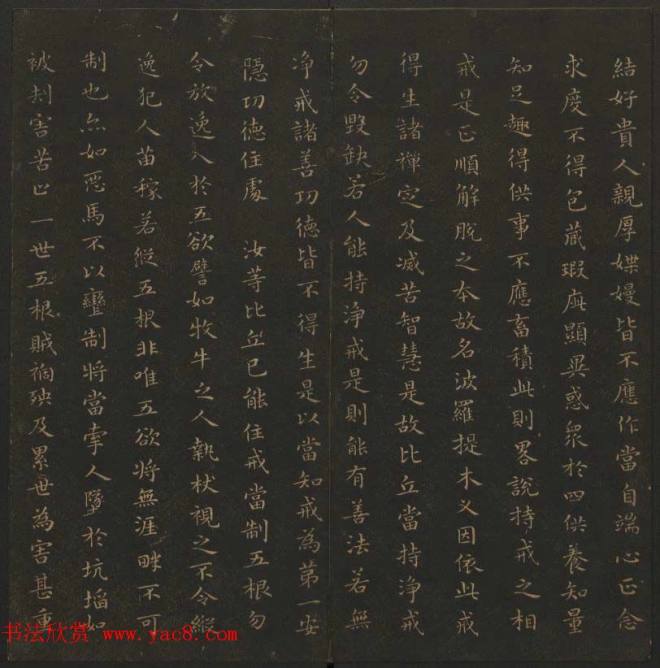 結好貴人親厚媟嫚皆不應作當自端心正念
求度不得包藏瑕疵顯異惑衆於四供養知量
知足趣得供事不應畜積此則畧說持戒之相
戒是正順解脫之本故名波羅提木义因依此戒
得生諸禪定及滅苦智慧是故比丘當持淨戒
勿令毀缺若人能持淨戒是則能有善法若無
淨戒諸善功德皆不得生是以當知戒為第一安
隱功德住處 汝等比丘已能住戒當制五根勿
令放逸入於五欲譬如牧牛之人執杖視之不令縱
逸犯人苗稼若縱五根非唯五欲將無涯畔不可
制也亦如惡馬不以轡制將當牽人墜於坑埳如
被刦害苦止一世五根賊禍殃及累世為害甚重
书法欣赏 www.yac8.com